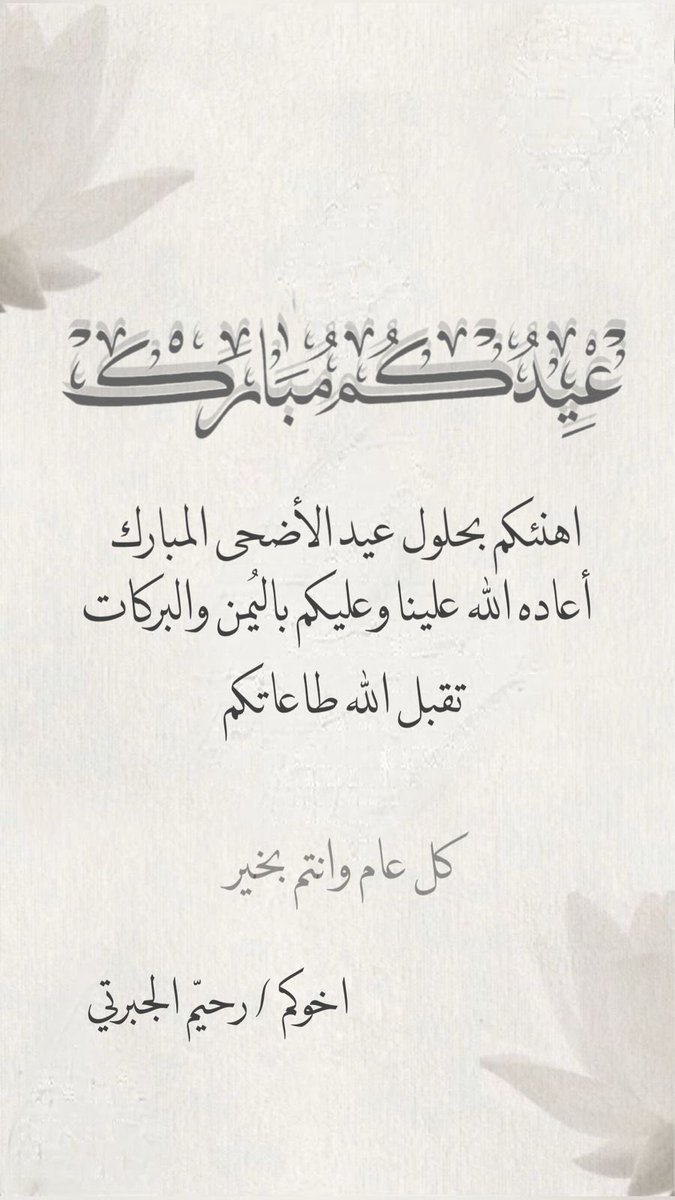 عِيدُكُم مُبَارَكْ
اهنئكم بحلول عيد الأضحى المبارك
أعاده الله علينا وعليكم باليُمن والبركات
تقبل الله طاعاتكم
كل عام وانتم بخير
اخوكم / رحيّم الجبرتي